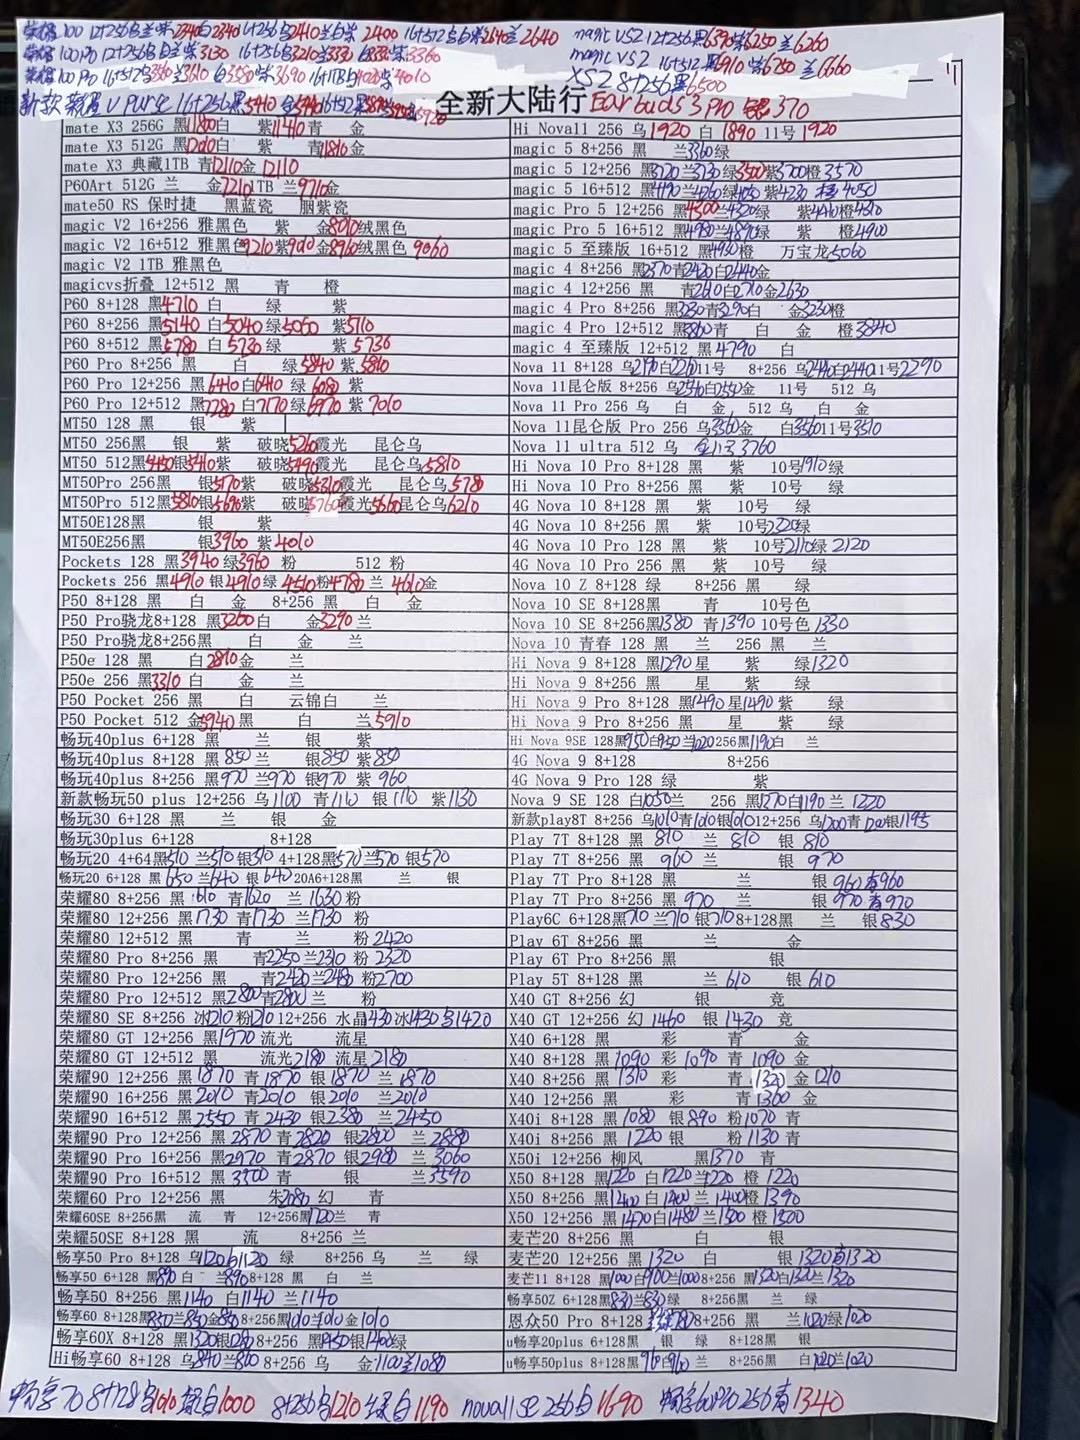 荣耀100 12+256乌兰紫2340白2340 16+256乌2410兰白紫2400 16+512乌白紫2640兰2640
magic VS2 12+256黑6390紫6250兰6260
荣耀100Pro 12+256乌白兰紫3130 16+256乌3210兰3330白3330紫3360
magic VS2 16+512黑6910紫6750兰6660
XS2 8+256黑6500
新款 荣耀 V Purse 16+256黑5410
全新大陆行 Earbuds 3 pro 银370
mate X3 256G 黑11800白 紫11410青 金
mate X3 512G 黑 白 紫 青11810金
mate X3 典藏1TB 青12110金 12110
P60Art 512G 兰 金7210 1TB 兰9710金
mate50 RS 保时捷 黑蓝瓷 胭紫瓷
magic V2 16+256 雅黑色 紫 金8010绒黑色
magic V2 16+512 雅黑色9210紫9010金8910绒黑色 9060
magic V2 1TB 雅黑色
magicvs折叠 12+512 黑 青 橙
P60 8+128 黑4710 白 绿 紫
P60 8+256 黑5140 白5040 绿5060 紫5110
P60 8+512 黑5780 白5730绿 紫5730
P60 Pro 8+256 黑 白 绿5840 紫5810
P60 Pro 12+256 黑6410白6410 绿6080 紫
P60 Pro 12+512 黑7280 白7170绿6970 紫7010
MT50 128 黑 银 紫
MT50 256黑 银 紫 破晓5260霞光 昆仑乌
MT50 512黑5450银5410紫 破晓5490霞光 昆仑乌5810
MT50Pro 256黑 银5170紫 破晓5310霞光 昆仑乌5780
MT50Pro 512黑5810银5690紫 破晓5760霞光5660昆仑乌6210
MT50E128黑 银 紫
MT50E256黑 银3960 紫4010
Pockets 128 黑3940绿3960 粉 512 粉
Pockets 256 黑4910 银4910绿 4510粉4780 兰 4610金
P50 8+128 黑 白 金 8+256 黑 白 金
P50 Pro骁龙8+128 黑3260白 金3290兰
P50 Pro骁龙8+256黑 白 金 兰
P50e 128 黑 白2810金 兰
P50e 256 黑3310白 金 兰
P50 Pocket 256 黑 白 云锦白 兰
P50 Pocket 512 金5940黑 白 兰5910
畅玩40plus 6+128 黑 兰 银 紫
畅玩40plus 8+128 黑850兰 银850 紫850
畅玩40plus 8+256 黑970 兰970 银970 紫960
新款畅玩50 plus 12+256 乌1100 青1110 银1110 紫1130
畅玩30 6+128 黑 兰 银 金
畅玩30plus 6+128 8+128
畅玩20 4+64黑510 兰510银510 4+128黑570兰570 银570
畅玩20 6+128 黑650兰640 银640 20A6+128黑 兰 银
荣耀80 8+256 黑1610 青1620 兰1630粉
荣耀80 12+256 黑1730 青1730 兰1730 粉
荣耀80 12+512 黑 青 兰 粉2420
荣耀80 Pro 8+256 黑 青2250兰2310 粉2320
荣耀80 Pro 12+256 黑 青2420兰2480 粉2700
荣耀80 Pro 12+512 黑2800青2800兰 粉
荣耀80 SE 8+256 冰1210粉1210 12+256 水晶1430冰1430乌1420
荣耀80 GT 12+256 黑1970流光 流星
荣耀80 GT 12+512 黑 流光2180 流星2180
荣耀90 12+256 黑1870 青1870 银1870 兰1870
荣耀90 16+256 黑2010 青2010 银2010 兰2010
荣耀90 16+512 黑2550 青2430 银2380 兰2450
荣耀90 Pro 12+256 黑2870青2820 银2800 兰2880
荣耀90 Pro 16+256 黑2970 青2870 银2980 兰3060
荣耀90 Pro 16+512 黑3500青 银 兰3590
荣耀60 Pro 12+256 黑 朱2080幻 青
荣耀60SE 8+256黑 流 青 12+256黑1720兰 青
荣耀50SE 8+128 黑 流 8+256 兰
畅享50 Pro 8+128 乌1120白1120 绿 8+256 乌 兰 绿
畅享50 6+128 黑890白 兰890 8+128 黑 白 兰
畅享50 8+256 黑1140 白1140 兰1140
畅享60 8+128黑850兰850金850 8+256黑1010兰1010金1010
畅享60X 8+128 黑1320银1280 8+256 黑1450银1400绿
Hi畅享60 8+128 乌840兰860 8+256 乌 金1100兰1080
Hi Nova11 256 乌1920 白 1890 11号 1920
magic 5 8+256 黑 兰3360绿
magic 5 12+256 黑3720兰3730绿3500紫3700橙3570
magic 5 16+512 黑4190兰4260绿4050紫4230 橙4050
magic Pro 5 12+256 黑4300兰4320绿 紫4410橙4610
magic Pro 5 16+512 黑4980兰4890绿 紫 橙4900
magic 5 至臻版 16+512 黑4930橙 万宝龙5060
magic 4 8+256 黑2370青2420白2440金
magic 4 12+256 黑 青2610白2710金2630
magic 4 Pro 8+256 黑3230青3290白 金3230橙
magic 4 Pro 12+512 黑3860青 白 金 橙3840
magic 4 至臻版 12+512 黑4790 白
Nova 11 8+128 乌2190白2260 11号 8+256 乌2440白2440 11号2290
Nova 11昆仑版 8+256 乌2540白2540金 11号 512 乌
Nova 11 Pro 256 乌 白 金, 512 乌 白 金
Nova 11昆仑版 Pro 256 乌3560金 白3560 11号3510
Nova 11 ultra 512 乌 金 3760
Hi Nova 10 Pro 8+128 黑 紫 10号1910绿
Hi Nova 10 Pro 8+256 黑 紫 10号 绿
4G Nova 10 8+128 黑 紫 10号 绿
4G Nova 10 8+256 黑 紫 10号2220绿
4G Nova 10 Pro 128 黑 紫 10号2110绿 2120
4G Nova 10 Pro 256 黑 紫 10号 绿
Nova 10 Z 8+128 绿 8+256 黑 绿
Nova 10 SE 8+128黑 青 10号色
Nova 10 SE 8+256黑1380 青1390 10号色 1330
Nova 10 青春 128 黑 兰 256 黑 兰
Hi Nova 9 8+128 黑1290星 紫 绿1320
Hi Nova 9 8+256 黑 星 紫 绿
Hi Nova 9 Pro 8+128 黑1490星1490 紫 绿
Hi Nova 9 Pro 8+256 黑 星 紫 绿
Hi Nova 9SE 128黑950白950兰1020 256黑1190白 兰
4G Nova 9 8+128 8+256
4G Nova 9 Pro 128 绿 紫
Nova 9 SE 128 白1050兰 256 黑1270白1190 兰 1220
新款play8T 8+256 乌1010青1010银1010 12+256 乌1200青1200银1195
Play 7T 8+128 黑 810 兰 810 银 810
Play 7T 8+256 黑 960 兰 银 970
Play 7T Pro 8+128 黑 兰 银 960青960
Play 7T Pro 8+256 黑 970 兰 银 970 青970
Play6C 6+128黑710 兰710 银710 8+128黑 兰 银830
Play 6T 8+256 黑 兰 金
Play 6T Pro 8+256 黑 银
Play 5T 8+128 黑 兰 610 银 610
X40 GT 8+256 幻 银 竞
X40 GT 12+256 幻 1460 银 1430 竞
X40 6+128 黑 彩 青 金
X40 8+128 黑1090 彩1090 青 1090 金
X40 8+256 黑 1310 彩 青 1320 金1210
X40 12+256 黑 彩 青1360 金
X40i 8+128 黑1080 银890 粉1070 青
X40i 8+256 黑1220银 粉1130青
X50i 12+256 柳风 黑1370 青
X50 8+128 黑1220 白1220兰1220 橙 1220
X50 8+256 黑1400白1400兰1400橙1390
X50 12+256 黑1470白1480兰1500 橙 1500
麦芒20 8+256 黑 白 银
麦芒20 12+256 黑1320 白 银1320青1320
麦芒11 8+128 黑1000白900兰1000 8+256 黑1320白1320兰1320
畅享50Z 6+128黑830兰830绿 8+256黑 兰 绿
恩众50 Pro 8+128 8+256黑 兰1020绿1020
u畅享20plus 6+128黑 银 绿 8+128黑 银
u畅享50plus 8+128黑960白960兰 8+256黑 白1020兰1020
畅享70 8+128乌1010绿白1000 8+256乌1210绿白1190 nova11SE 256白1690 畅享60Pro 256青1340